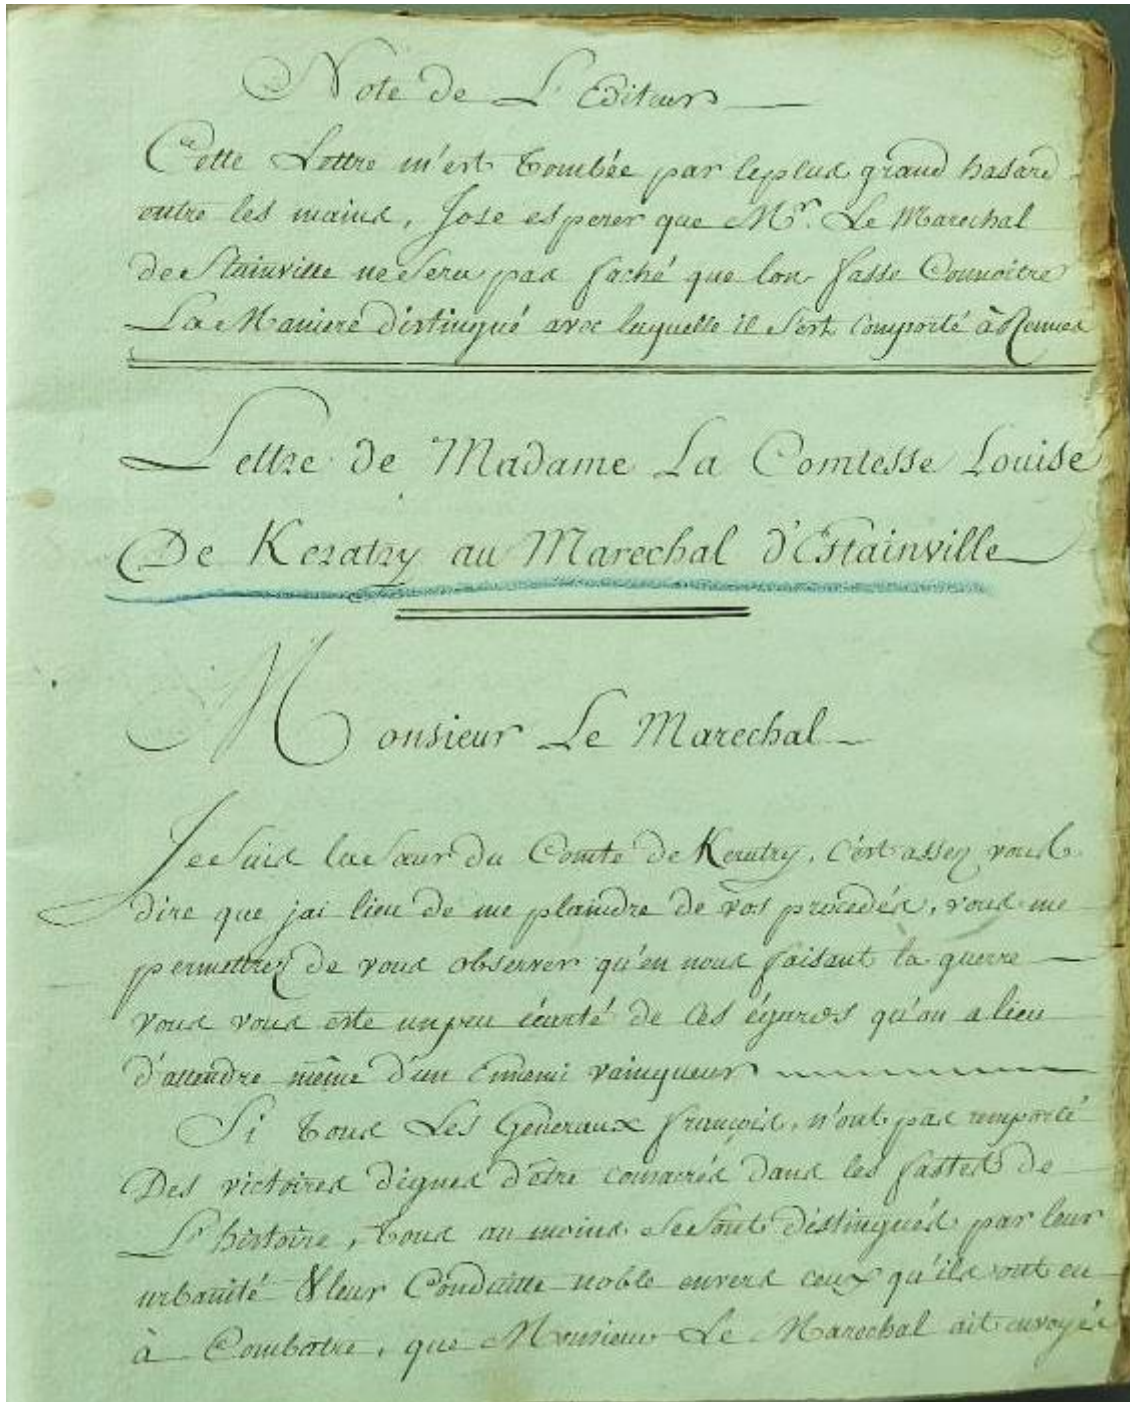 Note de L'Editeur
Cette Lettre m'est tombée par le plus grand hasard
entre les mains, Jose esperer que Mr. Le Marechal
de Stainville ne sera pas faché que lon fasse Connoitre
La Maniere distingué avec laquelle il s'est comporté à Rennes
Lettre de Madame La Comtesse Louise
De Keratry au Marechal d'Estainville
Monsieur Le Marechal
Je suis la sœur du Comte de Keratry, c'est assez vous
dire que jai lieu de me plaindre de vos procedés, vous me
permettrez de vous observer qu'en nous faisant la guerre
vous vous este un peu écarté de ces égards qu'on a lieu
d'attendre même d'un Ennemi vainqueur
Si tous Les Generaux françois, n'ont pas remporté
Des victoires dignes d'être consacrés dans les fastes de
L'histoire, tous au moins se sont distingués par leur
urbanité & leur Conduitte noble envers ceux qu'ils ont eu
à Combatre, que Monsieur Le Marechal ait envoyé